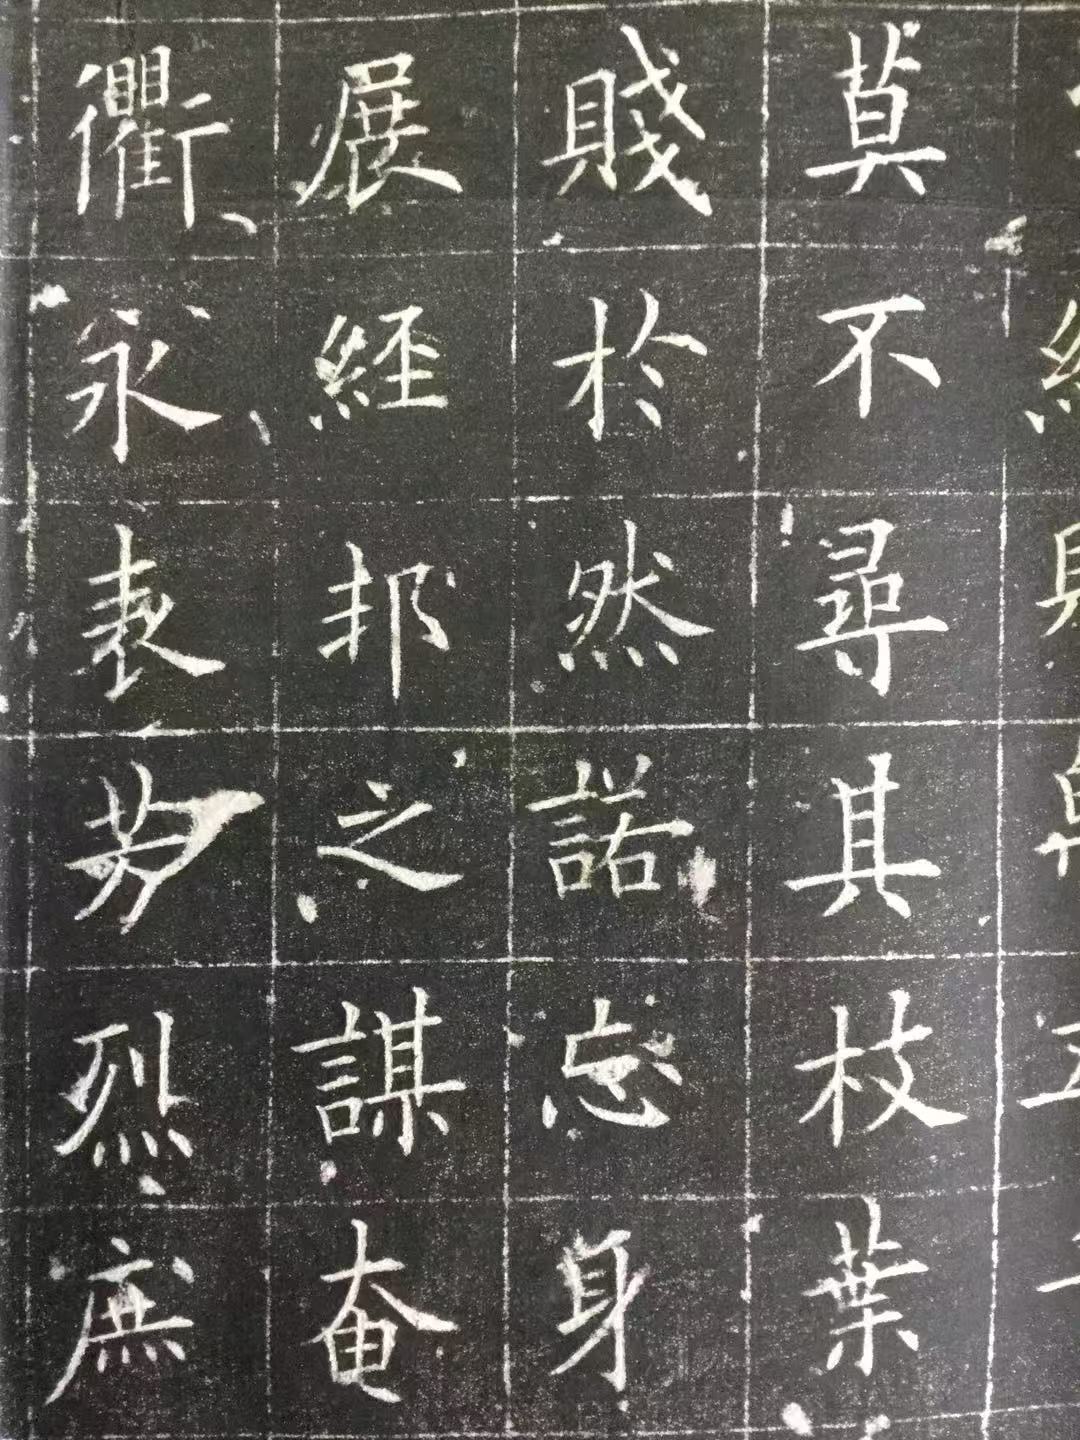 莫不尋其枝葉
賤於然諾忘身
展經邦之謀奄
衢永表芳烈庶